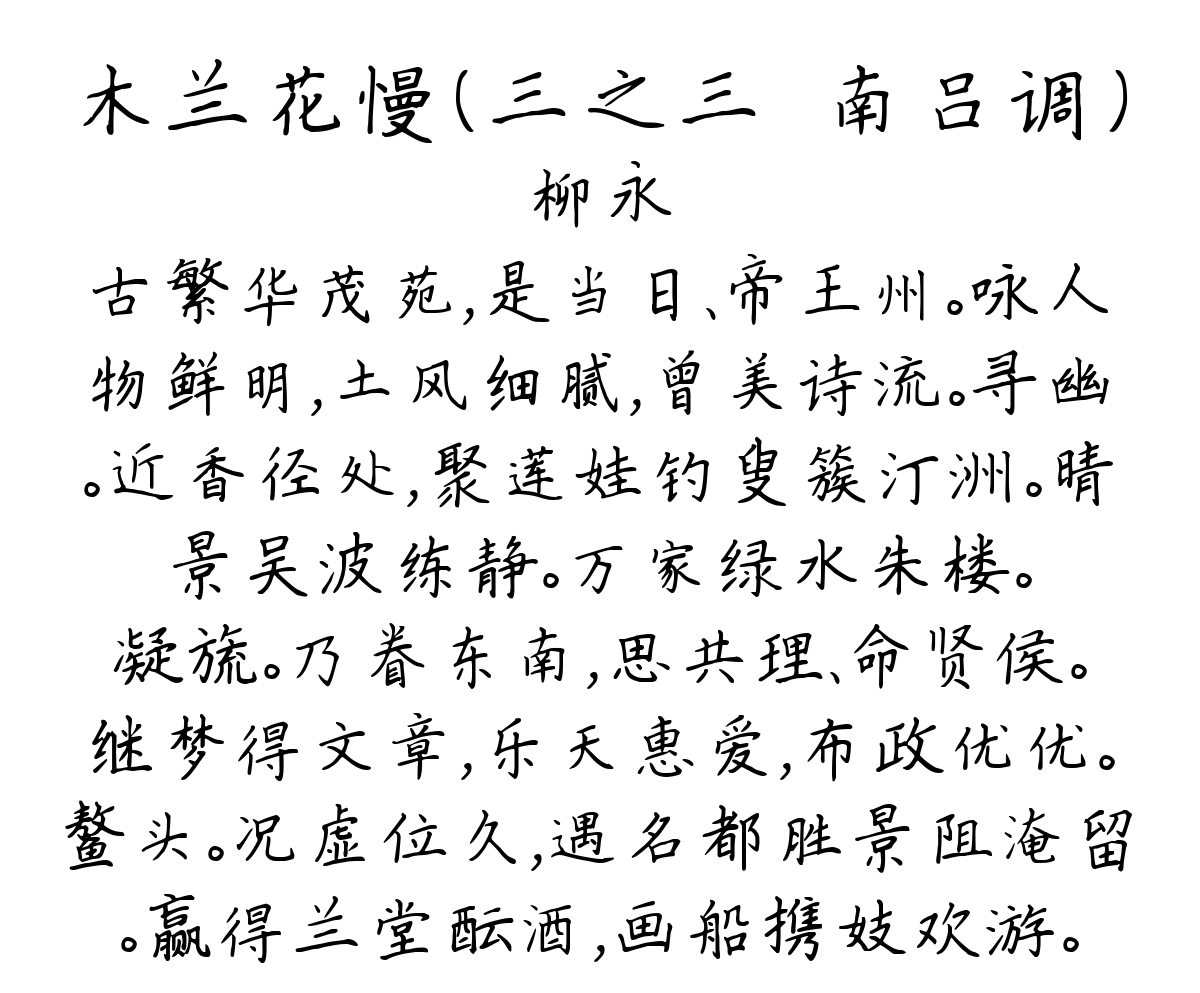 木兰花慢(三之三 南吕调)
柳永
古繁华茂苑,是当日、帝王州。咏人
物鲜明,土风细腻,曾美诗流。寻幽
。近香径处,聚莲娃钓叟簇汀洲。晴
景吴波练静。万家绿水朱楼。
凝旒。乃眷东南,思共理、命贤侯。
继梦得文章,乐天惠爱,布政优优。
鳌头。况虚位久,遇名都胜景阻淹留
。赢得兰堂酝酒,画船携妓欢游。